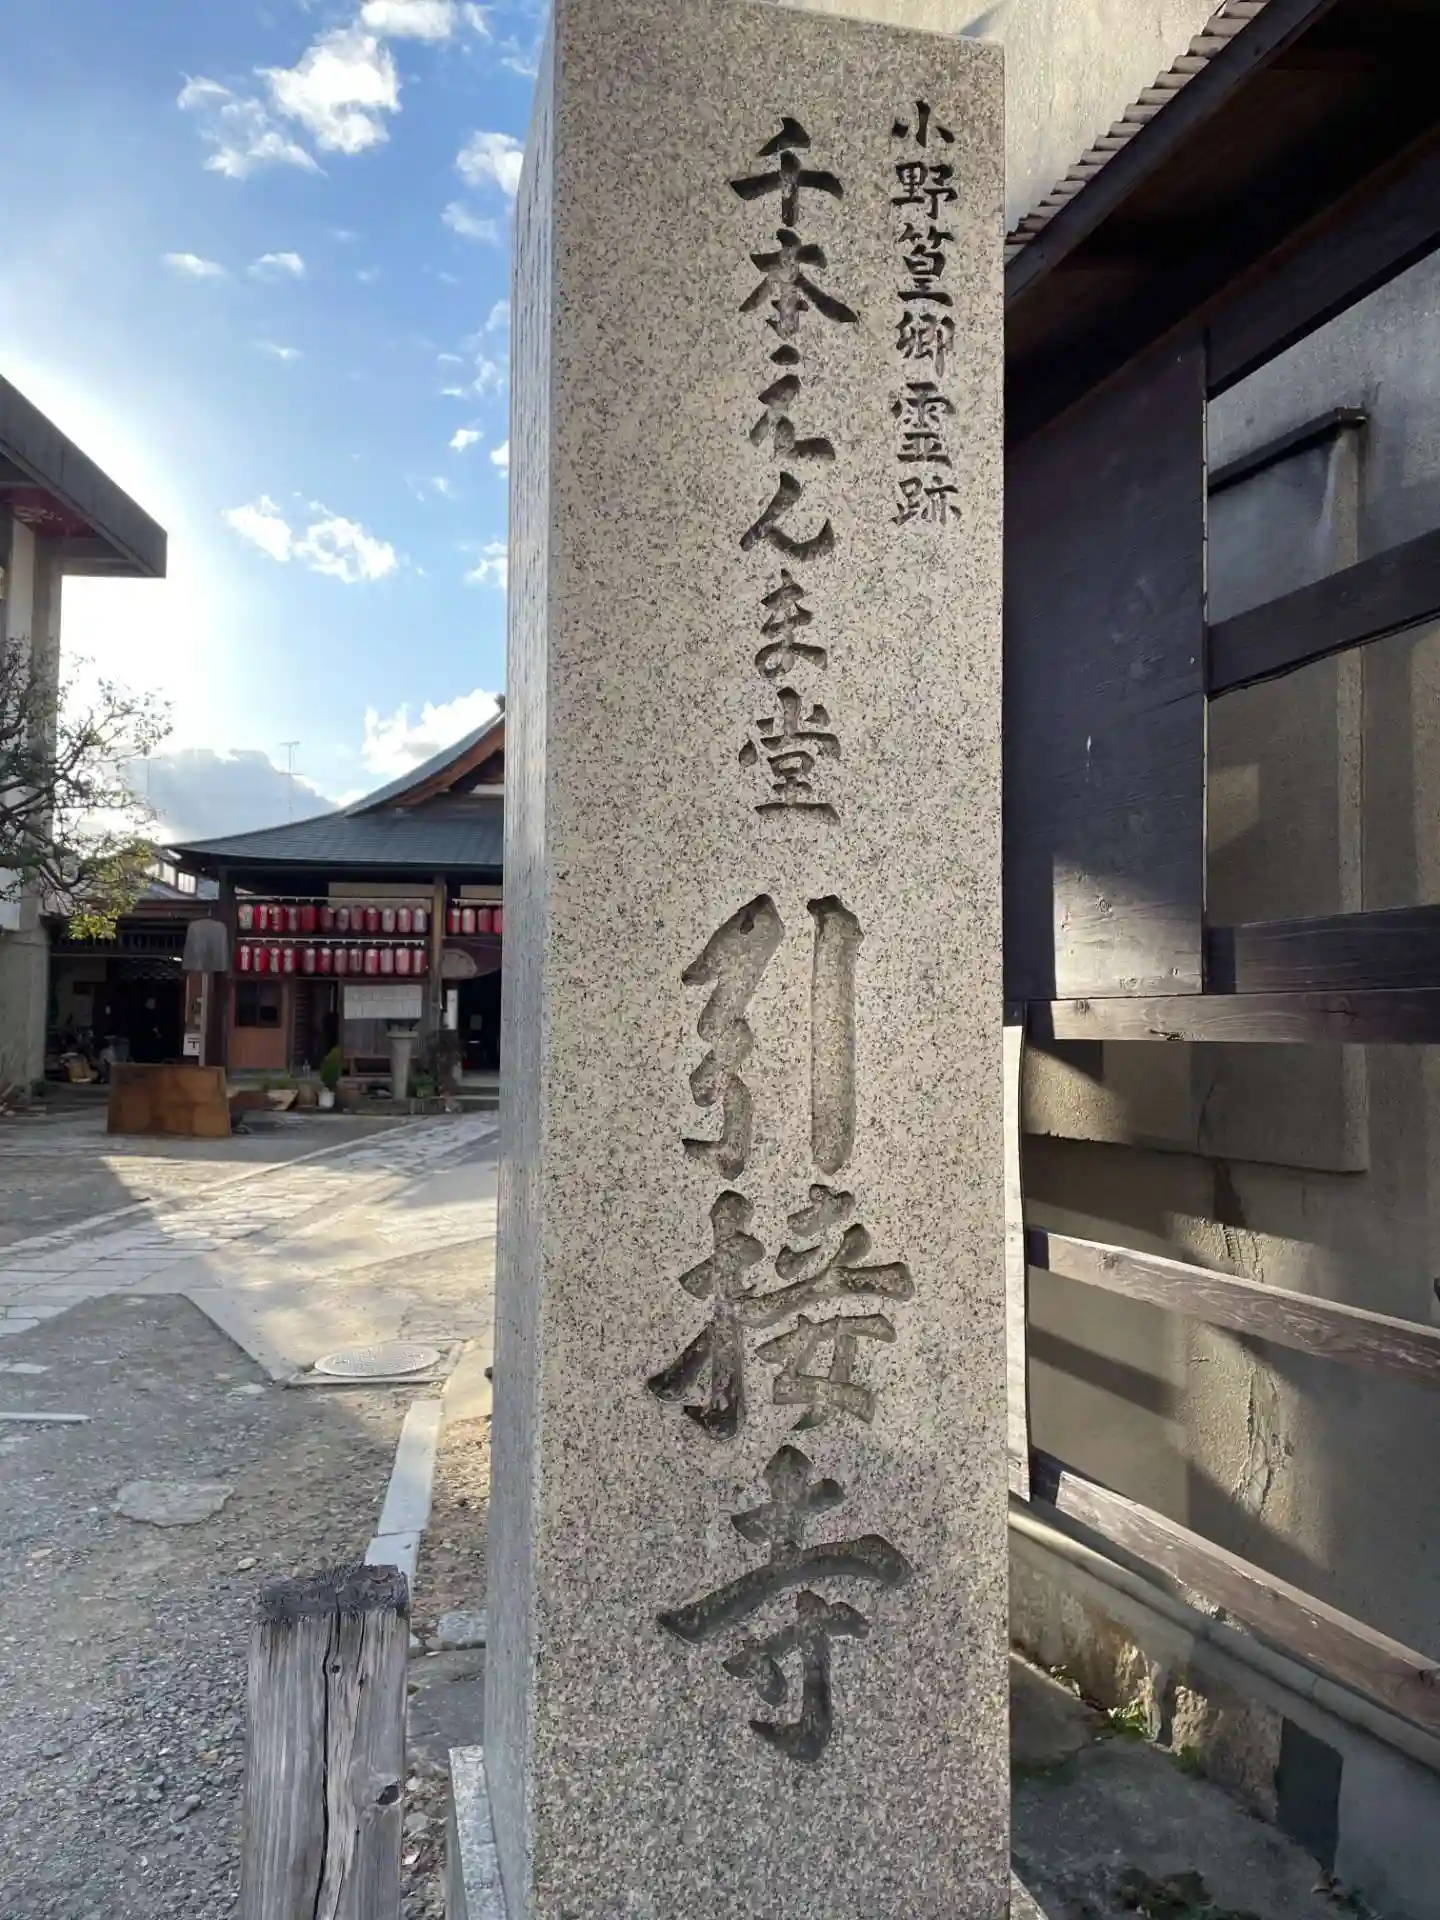 小野篁卿霊跡
千本ゑんま堂 引接寺